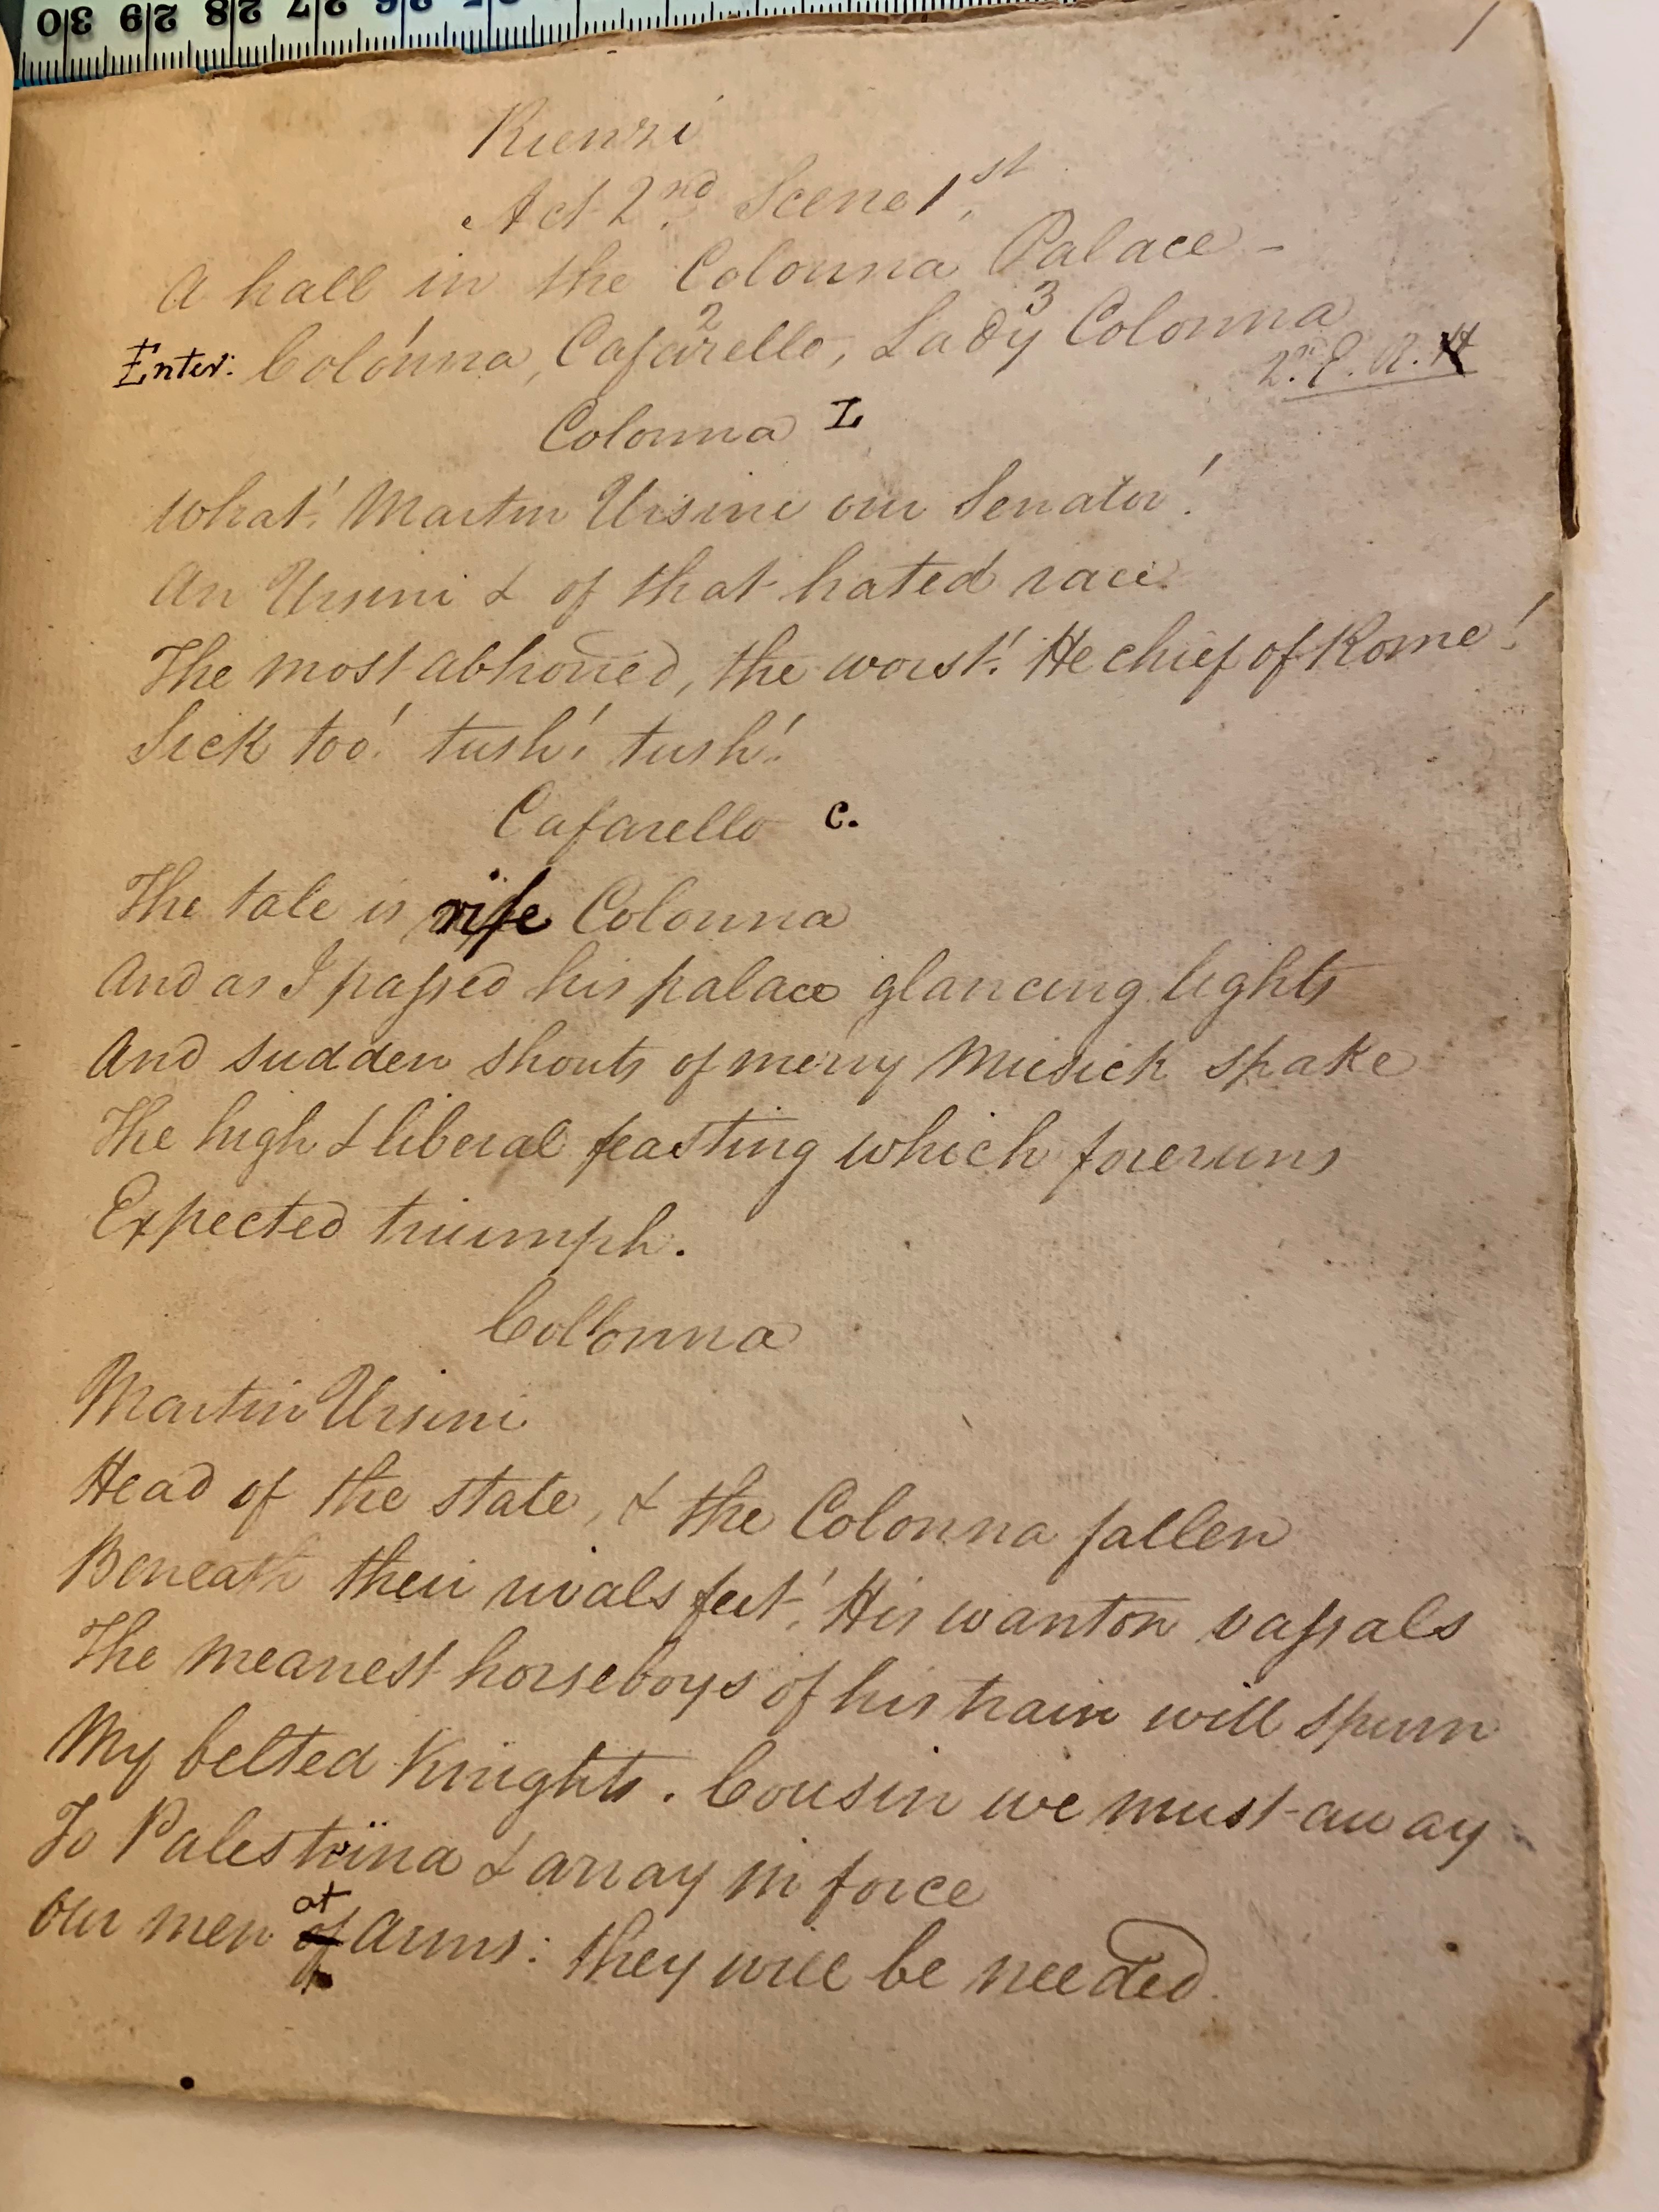 30 29 28 27 26 25
1
Rienzi
Act 2nd. Scene 1st.
A hall in the Colonna Palace -
1 2 3
Enter: Colonna, Cafarello, Lady Colonna
2nd. E. R.
Colonna L
What! Martin Ursini our Senator!
An Ursini & of that hated race
The most abhorred, the worst! He chief of Rome!
Sick too! tush! tush!
Cafarello C.
The tale is rife Colonna
And as I passed his palace glancing lights
And sudden shouts of merry Musick spake
The high & liberal feasting which foreruns
Expected triumph.
Collonna
Martin Ursini
Head of the state, & the Colonna fallen
Beneath their rivals feet! His wanton vassals
The meanest horseboys of his train will spurn
My belted Knights. Cousin we must away
To Palestrina & array in force
at
Our men of Arms: they will be needed.